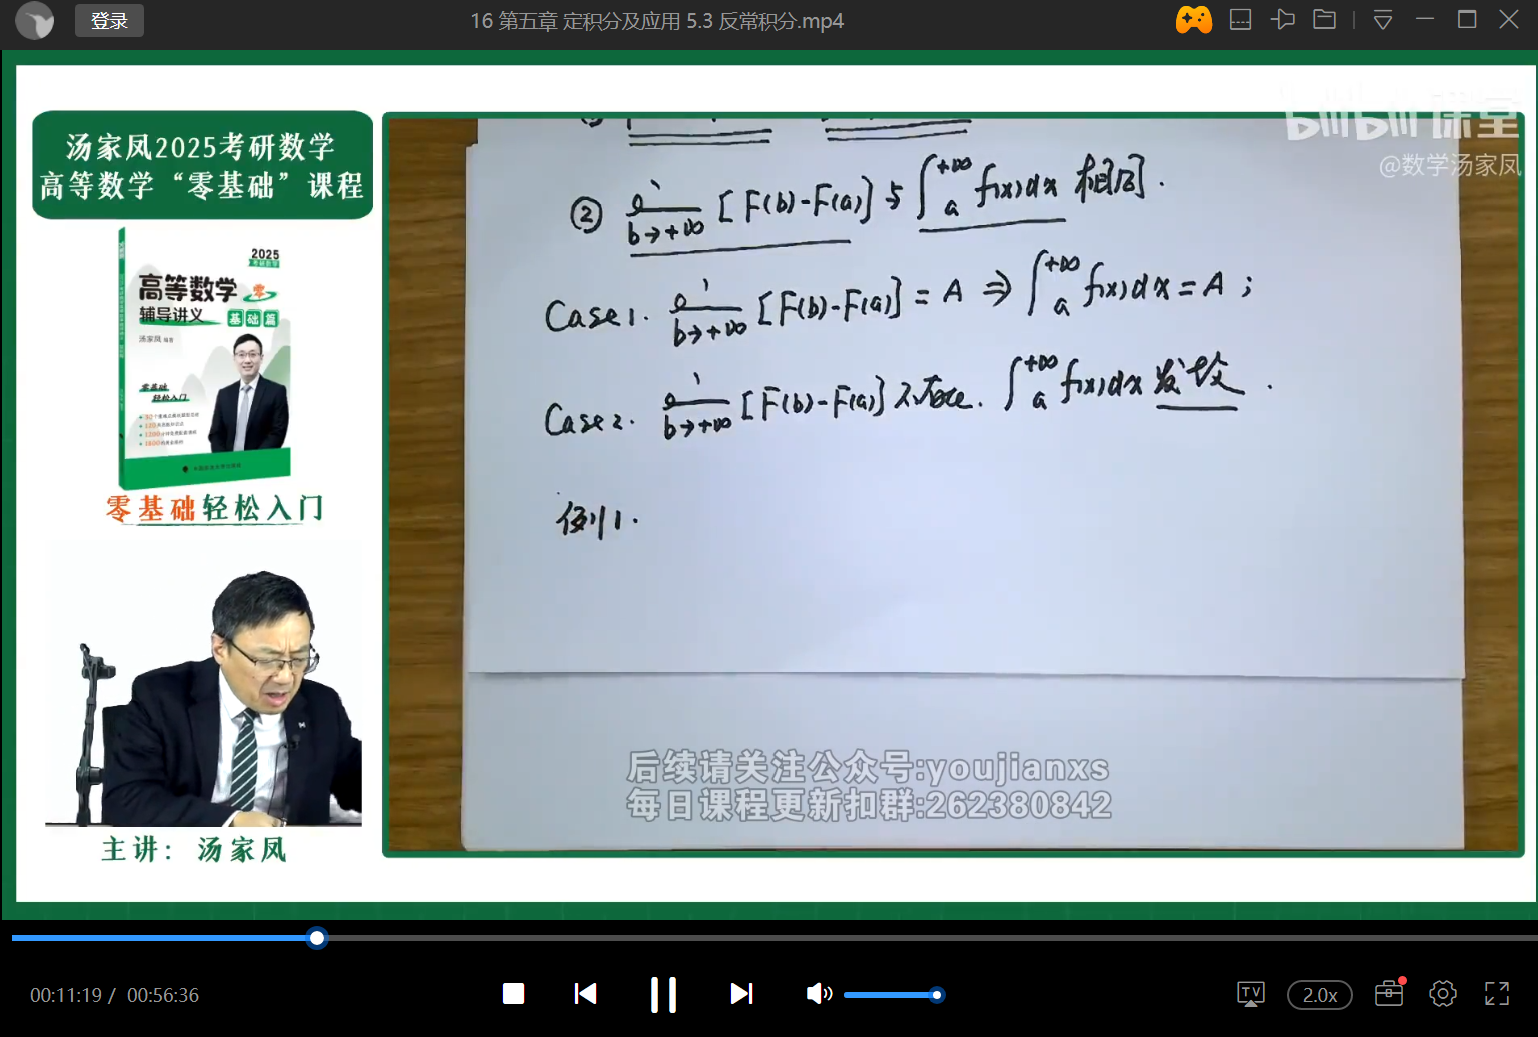 登录
16 第五章 定积分及应用 5.3 反常积分.mp4
汤家凤2025考研数学
高等数学“零基础”课程
2025
高等数学 零
辅导讲义 基础篇
汤家凤 编著
零基础
轻松入门
零基础轻松入门
主讲：汤家凤
bilibili 课堂
@数学汤家凤
② lim b→+∞ [F(b)-F(a)] 与 ∫a +∞ f(x)dx 相同.
Case 1. lim b→+∞ [F(b)-F(a)] = A ⇒ ∫a +∞ f(x)dx = A ;
Case 2. lim b→+∞ [F(b)-F(a)] 不存在. ∫a +∞ f(x)dx 发散.
例1.
后续请关注公众号:youjianxs
每日课程更新扣群:262380842
00:11:19 / 00:56:36
TV
2.0x